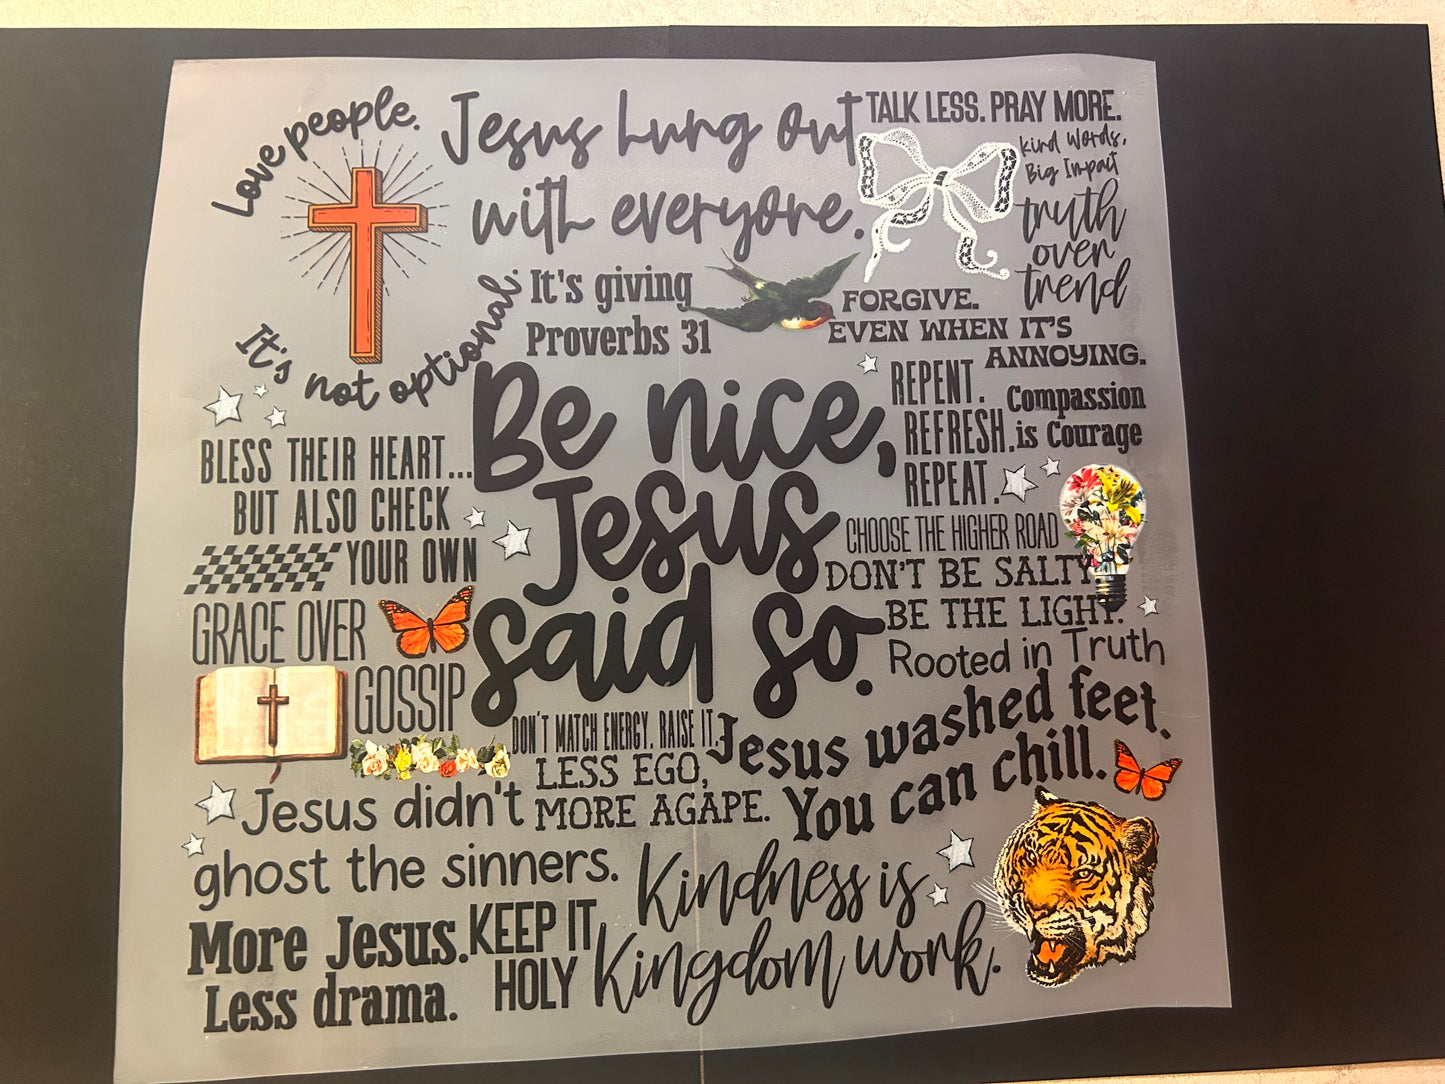 Love people.
It's not optional.
Jesus hung out
with everyone.
TALK LESS. PRAY MORE.
Kind Words,
Big Impact
truth
over
trend
It's giving
Proverbs 31
FORGIVE.
EVEN WHEN IT'S
ANNOYING.
Be nice,
Jesus
said so.
REPENT.
REFRESH.
REPEAT.
Compassion
is Courage
BLESS THEIR HEART...
BUT ALSO CHECK
YOUR OWN
CHOOSE THE HIGHER ROAD
DON'T BE SALTY
BE THE LIGHT.
Rooted in Truth
GRACE OVER
GOSSIP
DON'T MATCH ENERGY. RAISE IT.
LESS EGO,
MORE AGAPE.
Jesus washed feet.
You can chill.
Jesus didn't
ghost the sinners.
Kindness is
Kingdom work.
More Jesus.
Less drama.
KEEP IT
HOLY